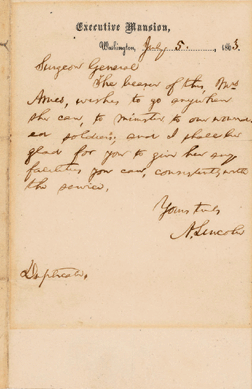 Executive Mansion,
Washington, July 5, 1863.
Surgeon General
The bearer of this, Mrs
Ames, wishes to go anywhere
she can, to minister to our wound-
ed soldiers; and I shall be
glad for you to give her any
facilities you can, consistently with
the service.
Yours truly
A. Lincoln
Duplicate.